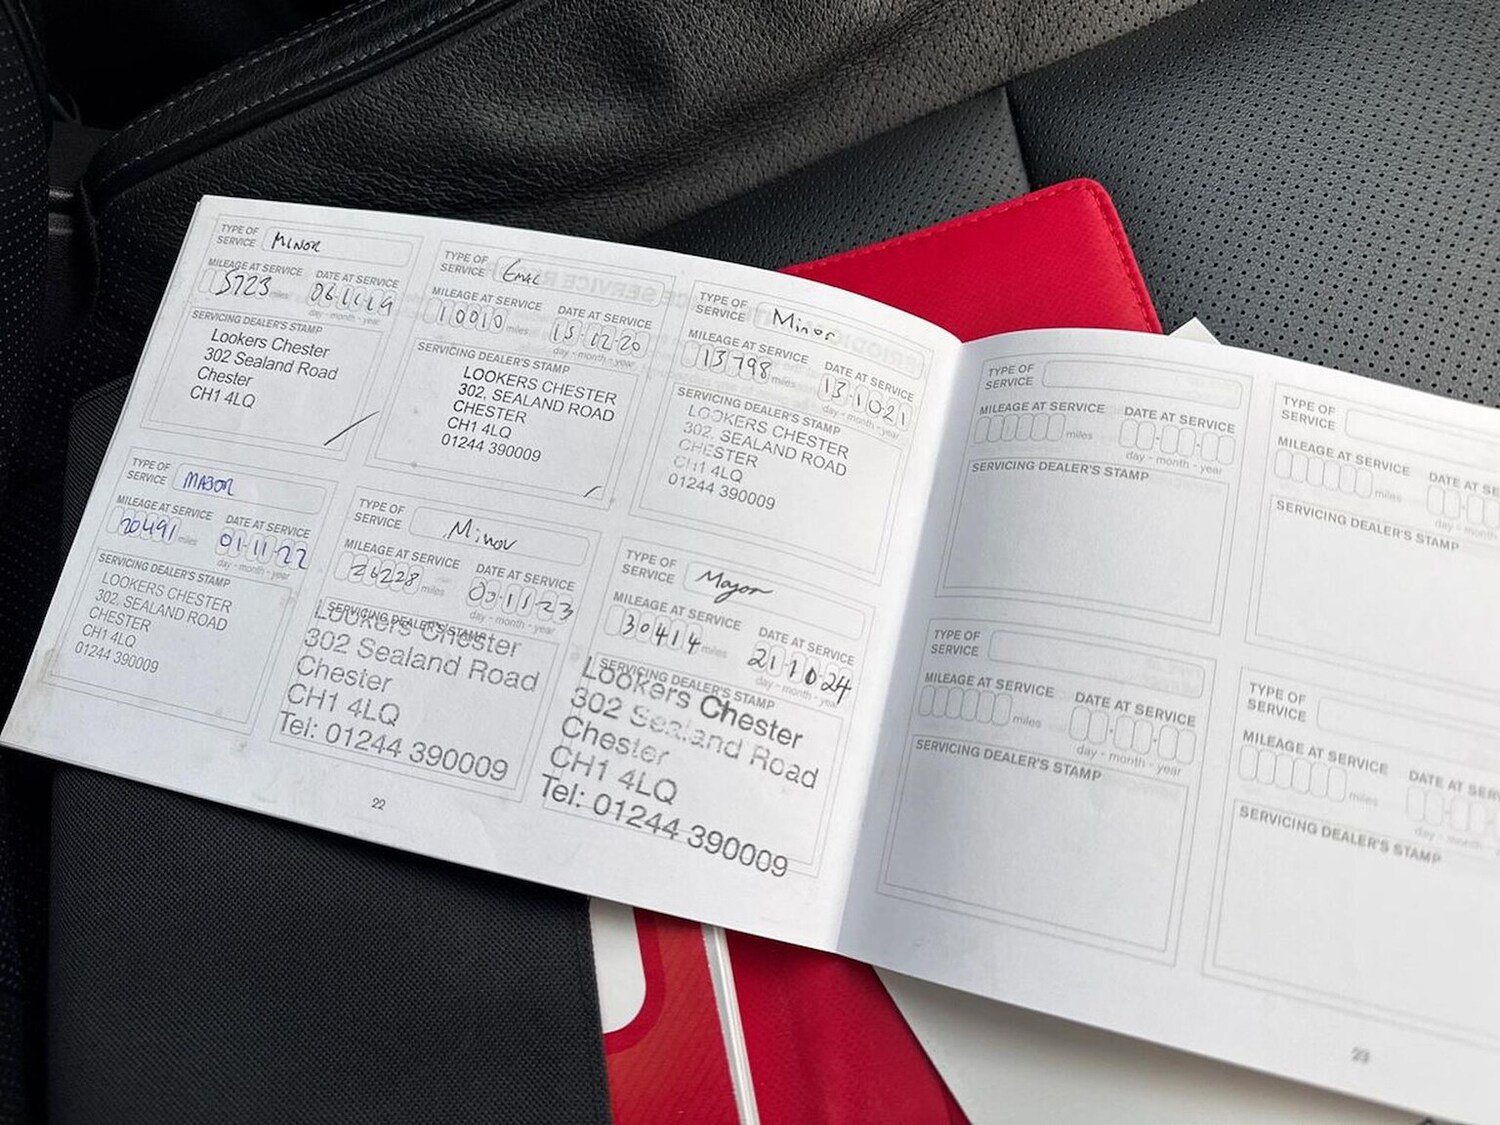 TYPE OF
SERVICE MINOR
MILEAGE AT SERVICE DATE AT SERVICE
5723 miles 06·11·19
day - month - year
SERVICING DEALER'S STAMP
Lookers Chester
302 Sealand Road
Chester
CH1 4LQ
TYPE OF
SERVICE
MILEAGE AT SERVICE DATE AT SERVICE
10010 miles 15·02·20
day - month - year
SERVICING DEALER'S STAMP
LOOKERS CHESTER
302, SEALAND ROAD
CHESTER
CH1 4LQ
01244 390009
TYPE OF
SERVICE Minor
MILEAGE AT SERVICE DATE AT SERVICE
13798 miles 13·10·21
day - month - year
SERVICING DEALER'S STAMP
LOOKERS CHESTER
302, SEALAND ROAD
CHESTER
CH1 4LQ
01244 390009
TYPE OF
SERVICE MAJOR
MILEAGE AT SERVICE DATE AT SERVICE
20491 miles 01·11·22
day - month - year
SERVICING DEALER'S STAMP
LOOKERS CHESTER
302, SEALAND ROAD
CHESTER
CH1 4LQ
01244 390009
TYPE OF
SERVICE Minor
MILEAGE AT SERVICE DATE AT SERVICE
26228 miles
day - month - year
SERVICING DEALER'S STAMP
Lookers Chester
302 Sealand Road
Chester
CH1 4LQ
Tel: 01244 390009
TYPE OF
SERVICE Major
MILEAGE AT SERVICE DATE AT SERVICE
30414 miles 21·10·24
day - month - year
SERVICING DEALER'S STAMP
Lookers Chester
302 Sealand Road
Chester
CH1 4LQ
Tel: 01244 390009
22
TYPE OF
SERVICE
MILEAGE AT SERVICE DATE AT SERVICE
miles
day - month - year
SERVICING DEALER'S STAMP
TYPE OF
SERVICE
MILEAGE AT SERVICE DATE AT SE
miles
day - month
SERVICING DEALER'S STAMP
TYPE OF
SERVICE
MILEAGE AT SERVICE DATE AT SERVICE
miles
day - month - year
SERVICING DEALER'S STAMP
TYPE OF
SERVICE
MILEAGE AT SERVICE DATE AT SER
miles
day - month
SERVICING DEALER'S STAMP
23